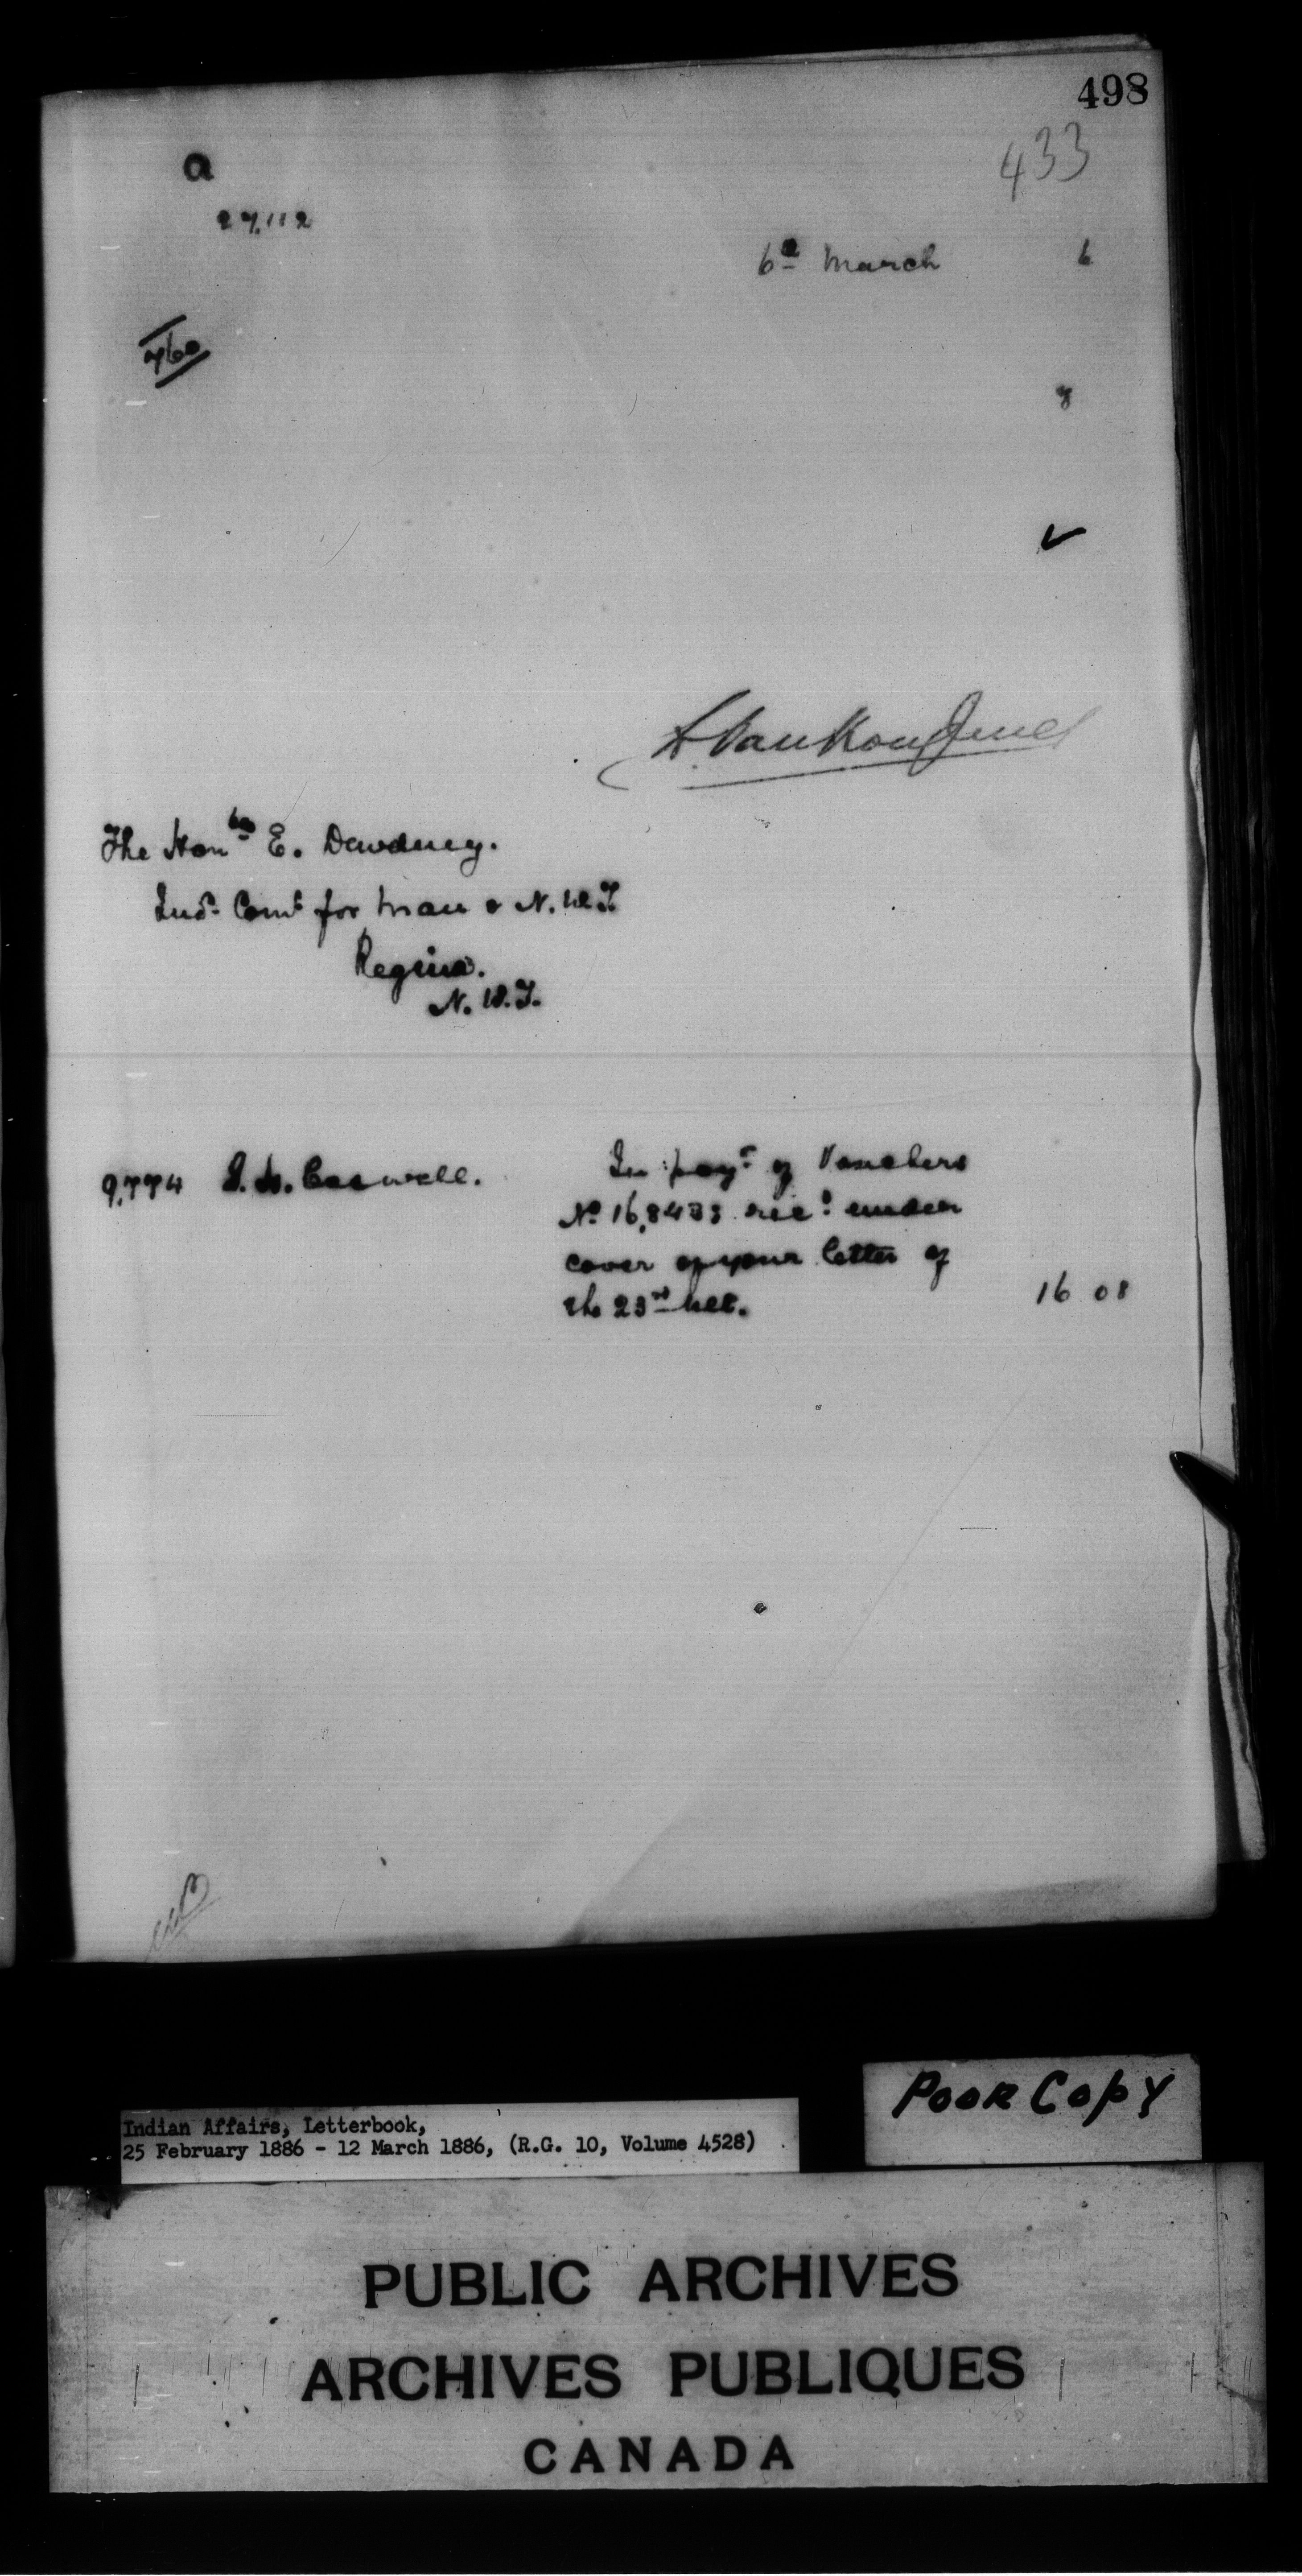 498
433
a
27,112
6th March 6
760
8
L. VanKoughnet
The Honble E. Dewdney.
Indn. Comr for Man & N.W.T.
Regina.
N.W.T.
9,774 J. W. Caswell.
In payt of Vouchers
No 16,8433 recd under
cover of your letter of
the 23rd ult.
16 08
Poor Copy
Indian Affairs, Letterbook,
25 February 1886 - 12 March 1886, (R.G. 10, Volume 4528)
PUBLIC ARCHIVES
ARCHIVES PUBLIQUES
CANADA